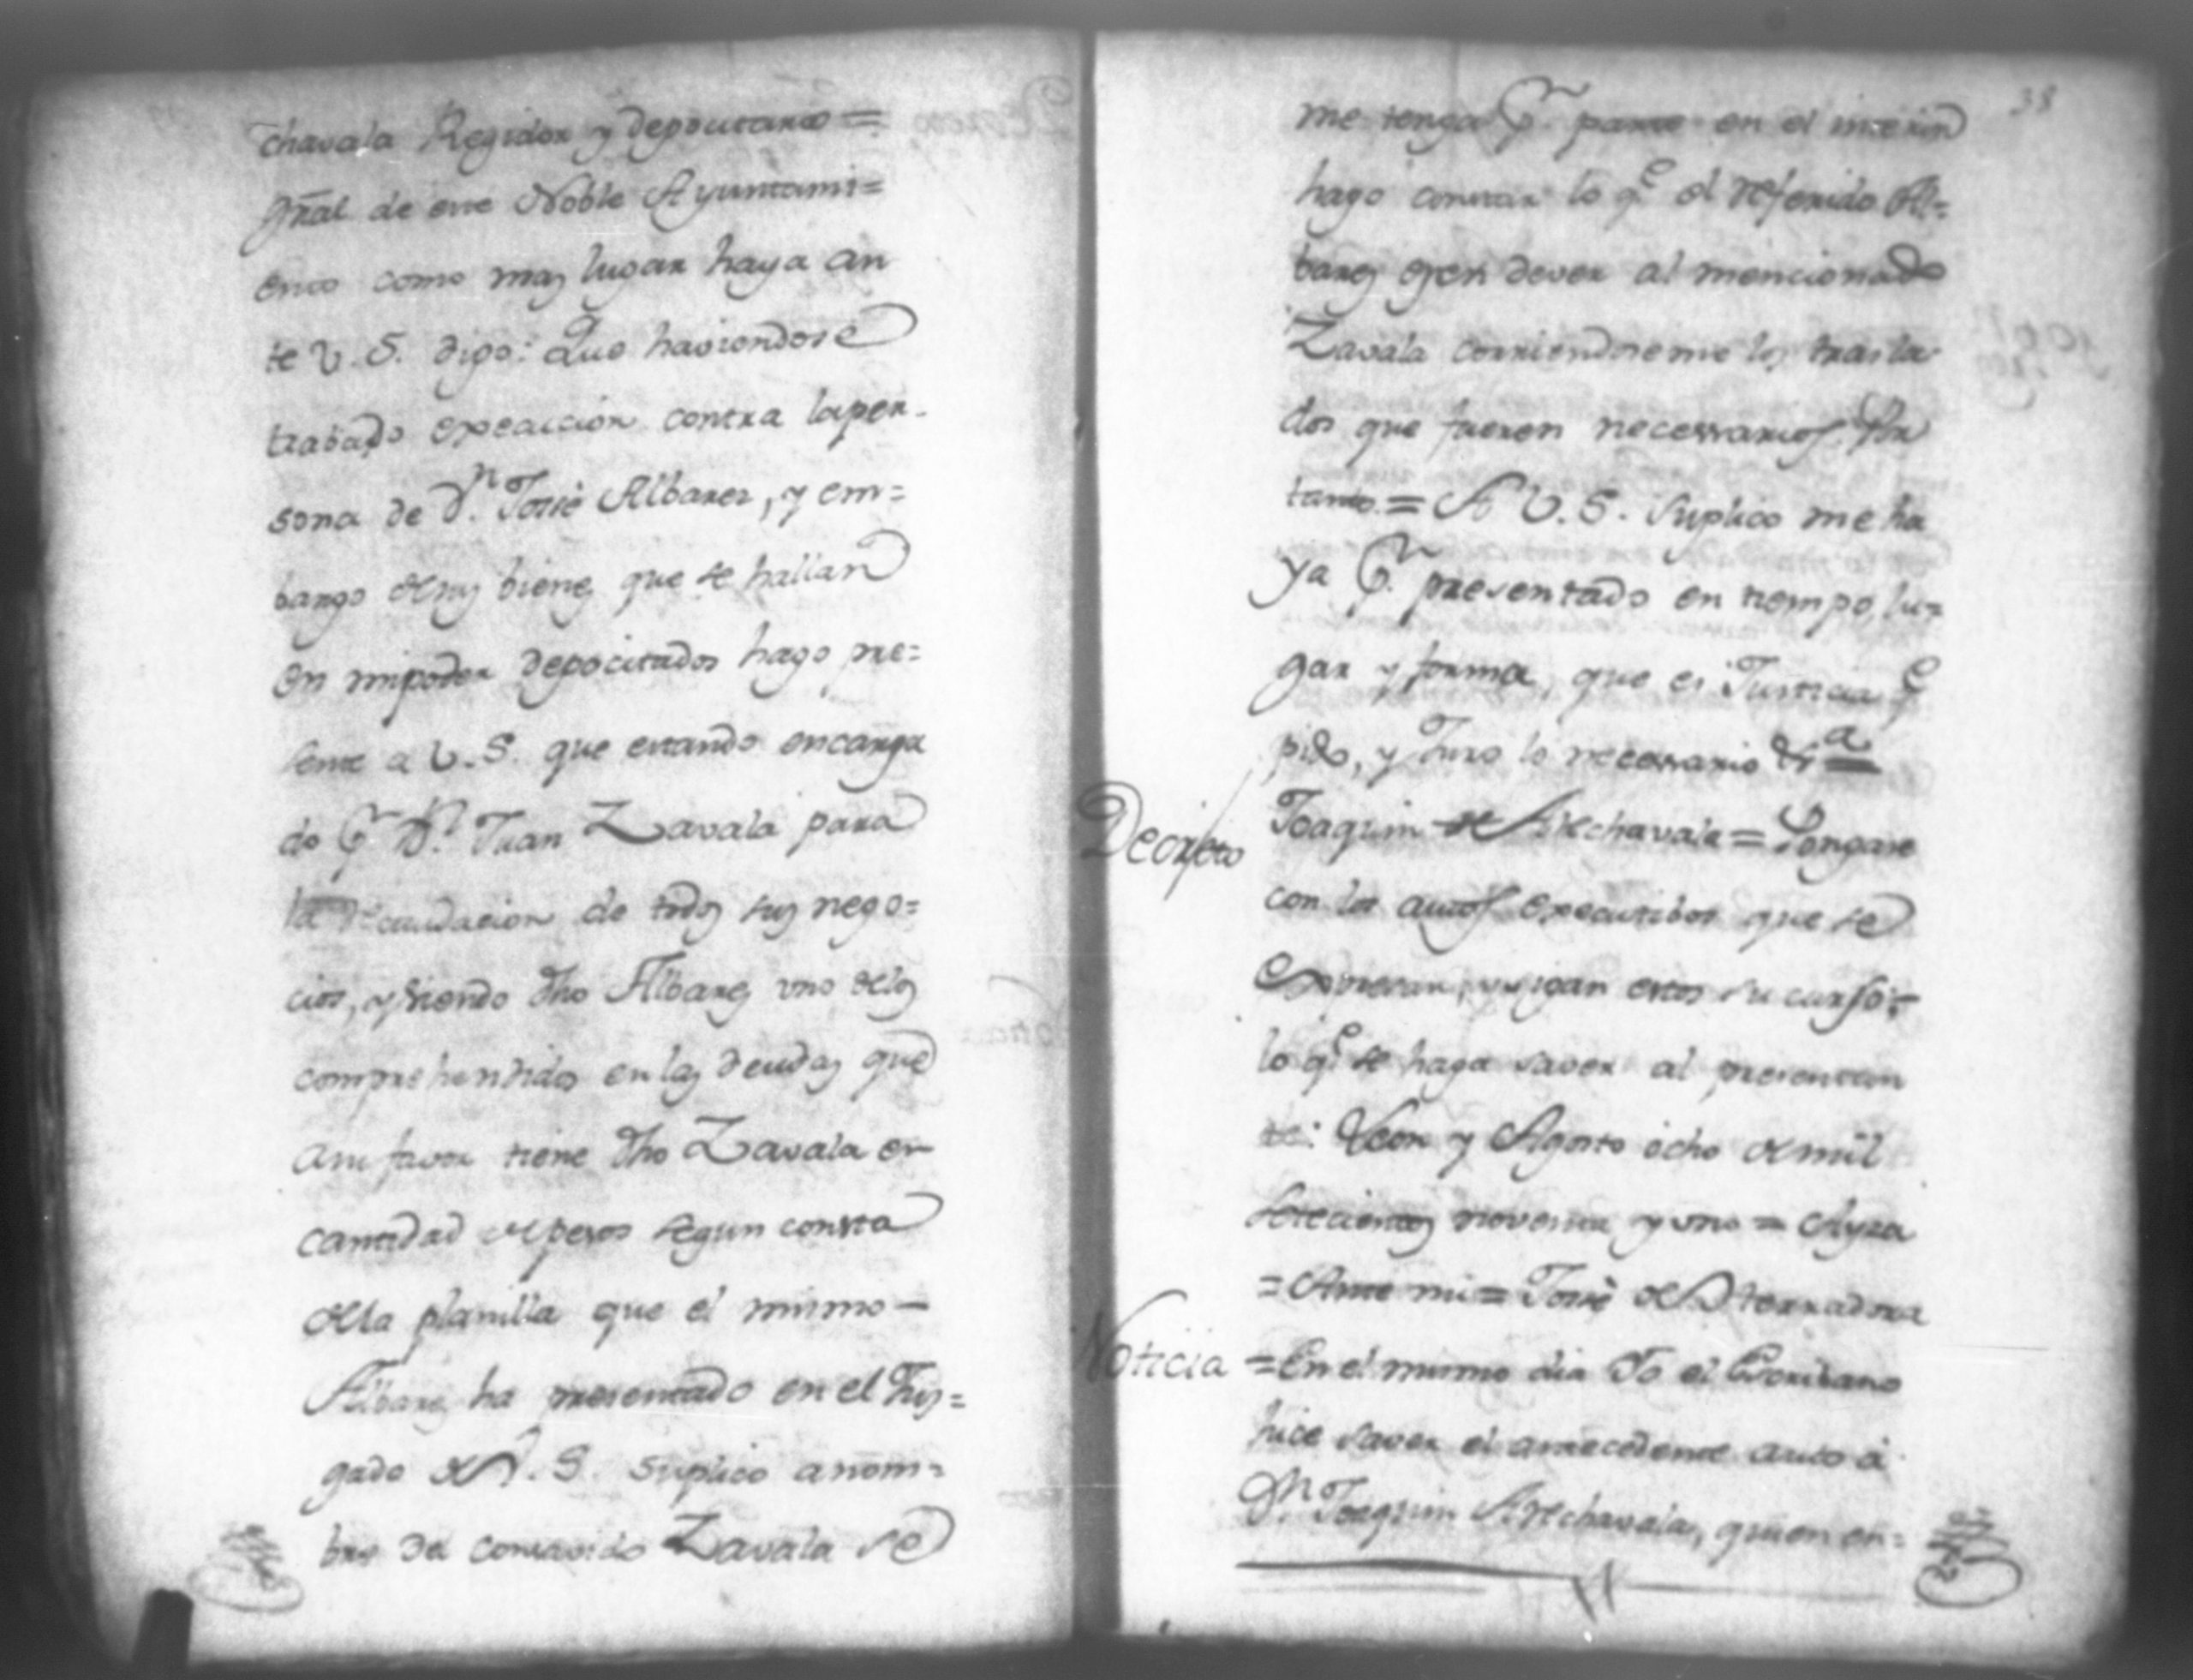 chavala Regidor y depocitario =
gñal de este Noble Ayuntami=
ento como mas lugar haya an
te V.S. digo: Que haviendose
trabado execucion contra laper-
sona de Dn. José Albares, y em=
bargo desus bienes que se hallan
en mipoder depocitados hago pre=
sente a V.S. que estando encarga
do Pr Dn. Juan Zavala para
la recaudacion de todos sus nego=
cios, y siendo dho Albares uno delos
comprehendidos en las deudas que
asu favor tiene dho Zavala en
cantidad de pesos segun consta
dela planilla que el mismo —
Albares ha presentado en el Juz=
gado de V.S. suplico anom=
bre del Zavala se
38
me tenga Pr. parte en el interin
hago constar lo qe el referido Al=
bares esen dever al mencionado
Zavala corriendoseme los trasla
dos que fueren necessarios. Por
tanto = A V.S. suplico me ha
ya Pr. presentado en tiempo, lu=
gar y forma, que es Justicia qe
pido, y Juro lo necessario &a =
Decreto
Joaquin de Arechavala = Pongase
con los autos executibos que se
expresan, y sigan estos su curso:=
lo qe. se haga saver al presentan
te: Leon y Agosto ocho de mil
setecientos noventa y uno = Ayza
= Ante mi = José de
Noticia
= En el mismo dia Yo el Escribano
hice saver el antecedente auto á
Dn. Joaquin Arechavala, quien en=